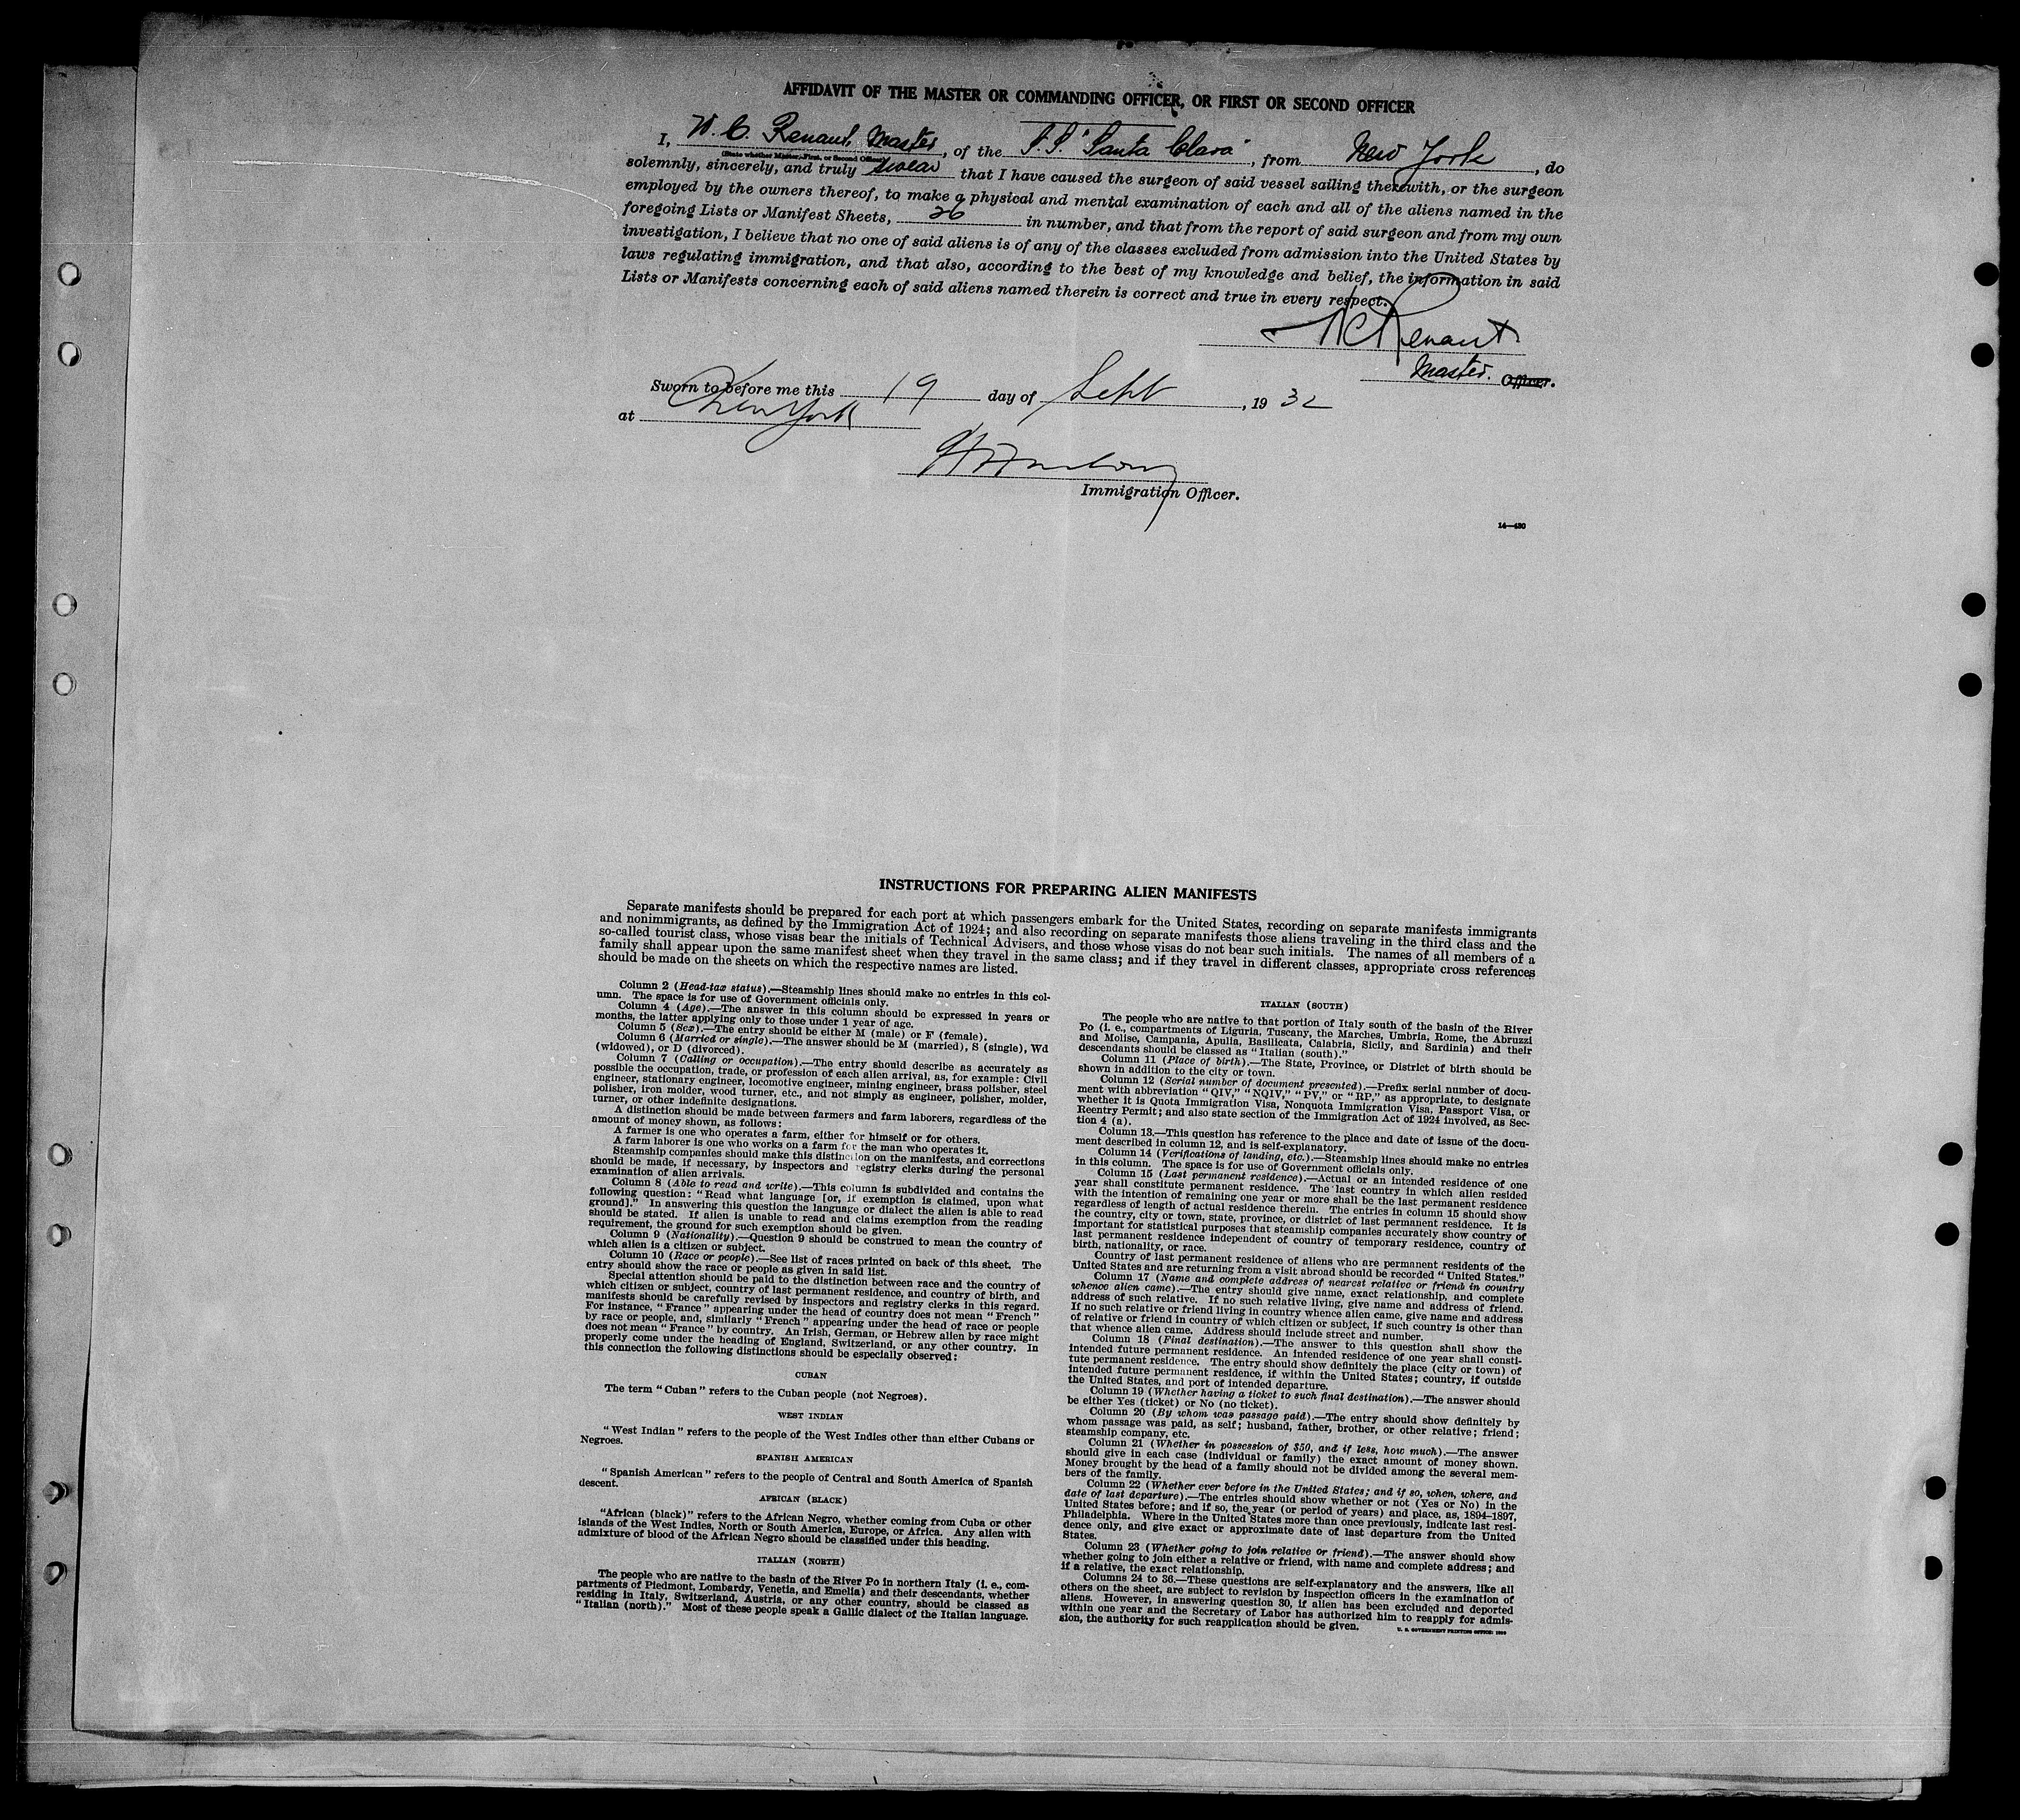 AFFIDAVIT OF THE MASTER OR COMMANDING OFFICER, OR FIRST OR SECOND OFFICER
I, W. C. Renaut, Master, of the S.S. "Santa Clara", from New York, do
(State whether Master, First, or Second Officer)
solemnly, sincerely, and truly swear that I have caused the surgeon of said vessel sailing therewith, or the surgeon
employed by the owners thereof, to make a physical and mental examination of each and all of the aliens named in the
foregoing Lists or Manifest Sheets, 26 in number, and that from the report of said surgeon and from my own
investigation, I believe that no one of said aliens is of any of the classes excluded from admission into the United States by
laws regulating immigration, and that also, according to the best of my knowledge and belief, the information in said
Lists or Manifests concerning each of said aliens named therein is correct and true in every respect.
W C Renaut
Master. Officer.
Sworn to before me this 19 day of Sept, 1932
at New York
Immigration Officer.
14—430
INSTRUCTIONS FOR PREPARING ALIEN MANIFESTS
Separate manifests should be prepared for each port at which passengers embark for the United States, recording on separate manifests immigrants
and nonimmigrants, as defined by the Immigration Act of 1924; and also recording on separate manifests those aliens traveling in the third class and the
so-called tourist class, whose visas bear the initials of Technical Advisers, and those whose visas do not bear such initials. The names of all members of a
family shall appear upon the same manifest sheet when they travel in the same class; and if they travel in different classes, appropriate cross references
should be made on the sheets on which the respective names are listed.
Column 2 (Head-tax status).—Steamship lines should make no entries in this col-
umn. The space is for use of Government officials only.
Column 4 (Age).—The answer in this column should be expressed in years or
months, the latter applying only to those under 1 year of age.
Column 5 (Sex).—The entry should be either M (male) or F (female).
Column 6 (Married or single).—The answer should be M (married), S (single), Wd
(widowed), or D (divorced).
Column 7 (Calling or occupation).—The entry should describe as accurately as
possible the occupation, trade, or profession of each alien arrival, as, for example: Civil
engineer, stationary engineer, locomotive engineer, mining engineer, brass polisher, steel
polisher, iron molder, wood turner, etc., and not simply as engineer, polisher, molder,
turner, or other indefinite designations.
A distinction should be made between farmers and farm laborers, regardless of the
amount of money shown, as follows:
A farmer is one who operates a farm, either for himself or for others.
A farm laborer is one who works on a farm for the man who operates it.
Steamship companies should make this distinction on the manifests, and corrections
should be made, if necessary, by inspectors and registry clerks during the personal
examination of alien arrivals.
Column 8 (Able to read and write).—This column is subdivided and contains the
following question: "Read what language [or, if exemption is claimed, upon what
ground]." In answering this question the language or dialect the alien is able to read
should be stated. If alien is unable to read and claims exemption from the reading
requirement, the ground for such exemption should be given.
Column 9 (Nationality).—Question 9 should be construed to mean the country of
which alien is a citizen or subject.
Column 10 (Race or people).—See list of races printed on back of this sheet. The
entry should show the race or people as given in said list.
Special attention should be paid to the distinction between race and the country of
which citizen or subject, country of last permanent residence, and country of birth, and
manifests should be carefully revised by inspectors and registry clerks in this regard.
For instance, "France" appearing under the head of country does not mean "French"
by race or people, and, similarly "French" appearing under the head of race or people
does not mean "France" by country. An Irish, German, or Hebrew alien by race might
properly come under the heading of England, Switzerland, or any other country. In
this connection the following distinctions should be especially observed:
CUBAN
The term "Cuban" refers to the Cuban people (not Negroes).
WEST INDIAN
"West Indian" refers to the people of the West Indies other than either Cubans or
Negroes.
SPANISH AMERICAN
"Spanish American" refers to the people of Central and South America of Spanish
descent.
AFRICAN (BLACK)
"African (black)" refers to the African Negro, whether coming from Cuba or other
islands of the West Indies, North or South America, Europe, or Africa. Any alien with
admixture of blood of the African Negro should be classified under this heading.
ITALIAN (NORTH)
The people who are native to the basin of the River Po in northern Italy (i. e., com-
partments of Piedmont, Lombardy, Venetia, and Emelia) and their descendants, whether
residing in Italy, Switzerland, Austria, or any other country, should be classed as
"Italian (north)." Most of these people speak a Gallic dialect of the Italian language.
ITALIAN (SOUTH)
The people who are native to that portion of Italy south of the basin of the River
Po (i. e., compartments of Liguria, Tuscany, the Marches, Umbria, Rome, the Abruzzi
and Molise, Campania, Apulia, Basilicata, Calabria, Sicily, and Sardinia) and their
descendants should be classed as "Italian (south)."
Column 11 (Place of birth).—The State, Province, or District of birth should be
shown in addition to the city or town.
Column 12 (Serial number of document presented).—Prefix serial number of docu-
ment with abbreviation "QIV," "NQIV," "PV," or "RP," as appropriate, to designate
whether it is Quota Immigration Visa, Nonquota Immigration Visa, Passport Visa, or
Reentry Permit; and also state section of the Immigration Act of 1924 involved, as Sec-
tion 4 (a).
Column 13.—This question has reference to the place and date of issue of the docu-
ment described in column 12, and is self-explanatory.
Column 14 (Verifications of landing, etc.).—Steamship lines should make no entries
in this column. The space is for use of Government officials only.
Column 15 (Last permanent residence).—Actual or an intended residence of one
year shall constitute permanent residence. The last country in which alien resided
with the intention of remaining one year or more shall be the last permanent residence
regardless of length of actual residence therein. The entries in column 15 should show
the country, city or town, state, province, or district of last permanent residence. It is
important for statistical purposes that steamship companies accurately show country of
last permanent residence independent of country of temporary residence, country of
birth, nationality, or race.
Country of last permanent residence of aliens who are permanent residents of the
United States and are returning from a visit abroad should be recorded "United States."
Column 17 (Name and complete address of nearest relative or friend in country
whence alien came).—The entry should give name, exact relationship, and complete
address of such relative. If no such relative living, give name and address of friend.
If no such relative or friend living in country whence alien came, give name and address
of relative or friend in country of which citizen or subject, if such country is other than
that whence alien came. Address should include street and number.
Column 18 (Final destination).—The answer to this question shall show the
intended future permanent residence. An intended residence of one year shall consti-
tute permanent residence. The entry should show definitely the place (city or town) of
intended future permanent residence, if within the United States; country, if outside
the United States, and port of intended departure.
Column 19 (Whether having a ticket to such final destination).—The answer should
be either Yes (ticket) or No (no ticket).
Column 20 (By whom was passage paid).—The entry should show definitely by
whom passage was paid, as self; husband, father, brother, or other relative; friend;
steamship company, etc.
Column 21 (Whether in possession of $50, and if less, how much).—The answer
should give in each case (individual or family) the exact amount of money shown.
Money brought by the head of a family should not be divided among the several mem-
bers of the family.
Column 22 (Whether ever before in the United States; and if so, when, where, and
date of last departure).—The entries should show whether or not (Yes or No) in the
United States before; and if so, the year (or period of years) and place, as, 1894–1897,
Philadelphia. Where in the United States more than once previously, indicate last resi-
dence only, and give exact or approximate date of last departure from the United
States.
Column 23 (Whether going to join relative or friend).—The answer should show
whether going to join either a relative or friend, with name and complete address; and
if a relative, the exact relationship.
Columns 24 to 36.—These questions are self-explanatory and the answers, like all
others on the sheet, are subject to revision by inspection officers in the examination of
aliens. However, in answering question 30, if alien has been excluded and deported
within one year and the Secretary of Labor has authorized him to reapply for admis-
sion, the authority for such reapplication should be given.
U. S. GOVERNMENT PRINTING OFFICE: